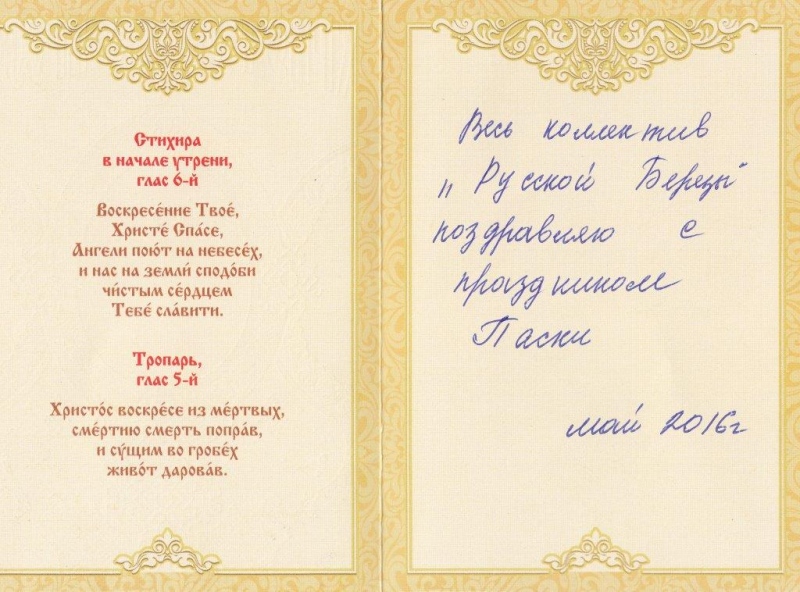 Стихира
в начале утрени,
глас 6-й
Воскресе́ние Твое́,
Христе́ Спа́се,
А́нгели пою́т на небесе́х,
и нас на земли́ сподо́би
чи́стым се́рдцем
Тебе́ сла́вити.
Тропарь,
глас 5-й
Христо́с воскре́се из ме́ртвых,
сме́ртию смерть попра́в,
и су́щим во гробе́х
живо́т дарова́в.
Весь коллектив
„Русской Березы"
поздравляю с
праздником
Пасхи
май 2016г